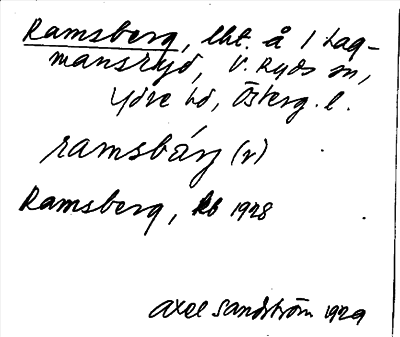 Ramsberg, lht. å 1 Lag-
mansryd, V. Ryds sn,
Ydre hd, Österg. l.
ramsbärj (r)
Ramsberg, Rb 1928
Axel Sandström 1929